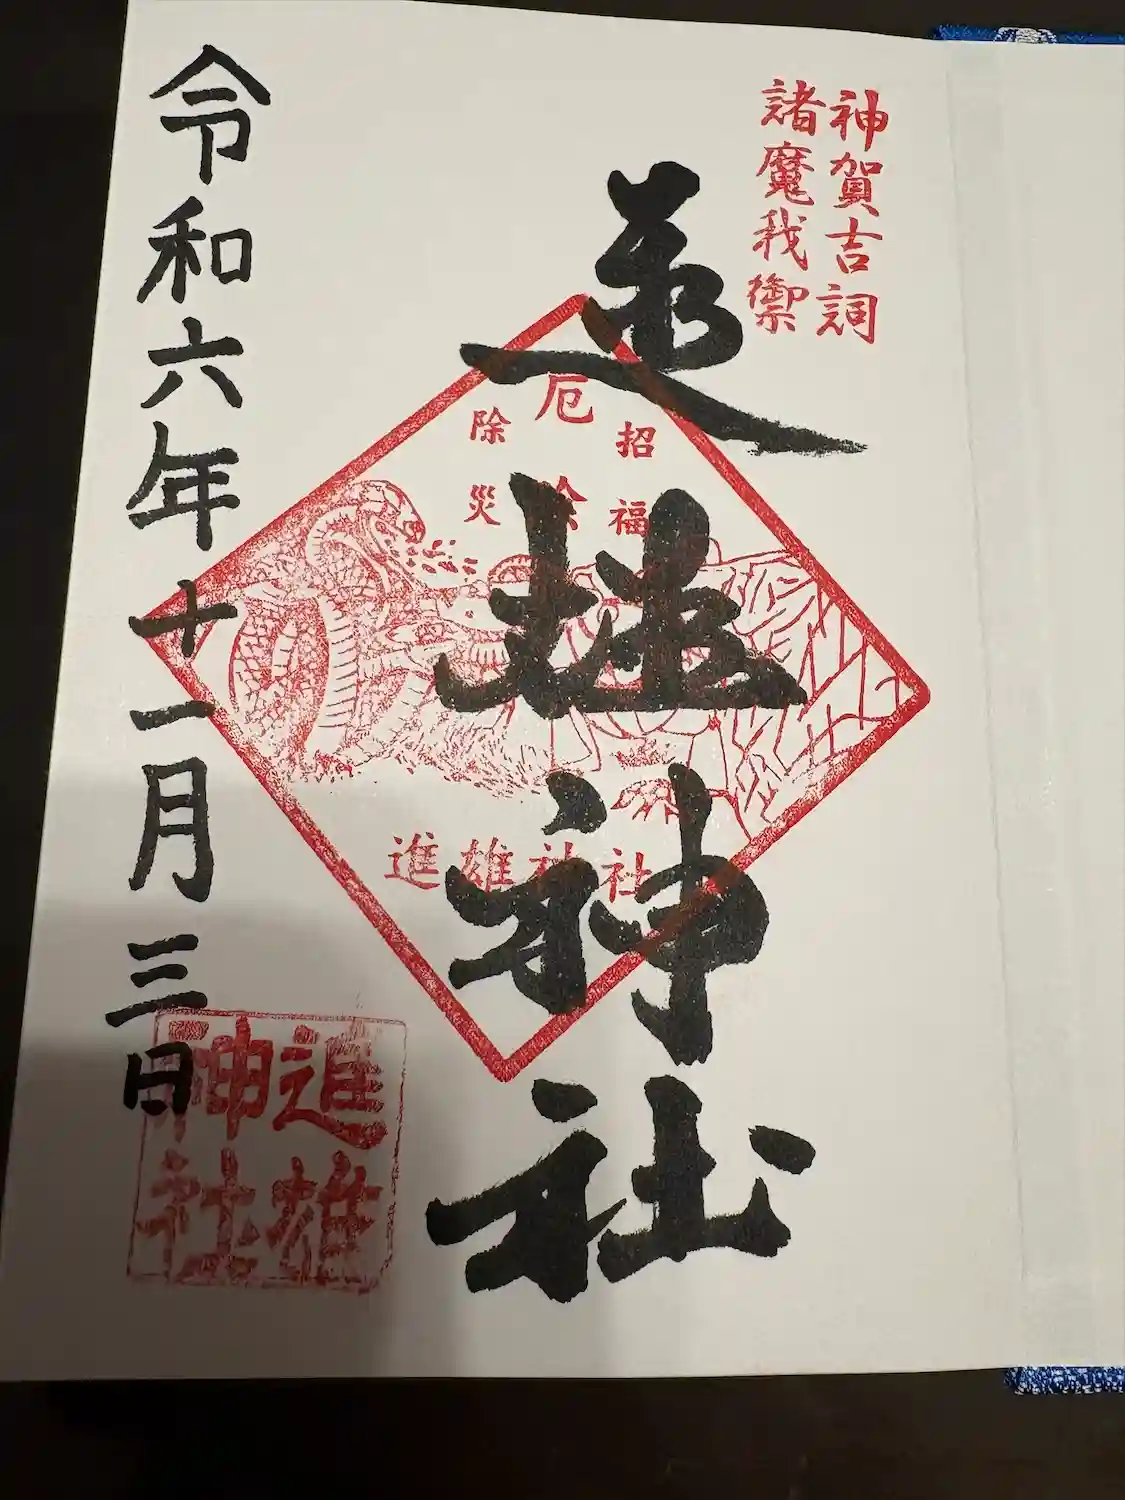 神賀吉詞
諸魔我禦
進雄神社
招福
厄除
除災
進雄神社
令和六年十一月三日
進雄
神社